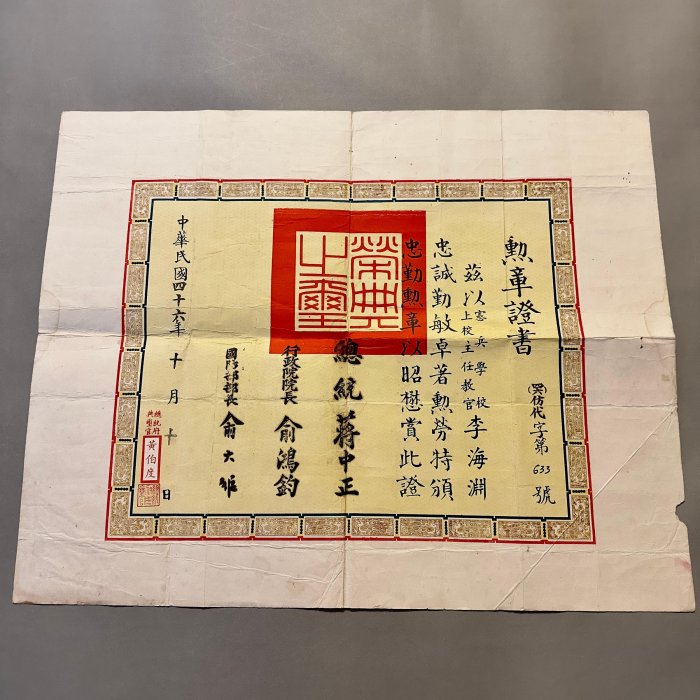 勲章證書
仿代字第633號
茲以憲兵學校上校主任教官李海淵
忠誠勤敏卓著勲勞特頒
忠勤勲章以昭懋賞此證
榮典之璽
總統蔣中正
行政院院長俞鴻鈞
國防部部長俞大維
中華民國四十六年十月十日
總統府典璽官
黃伯度